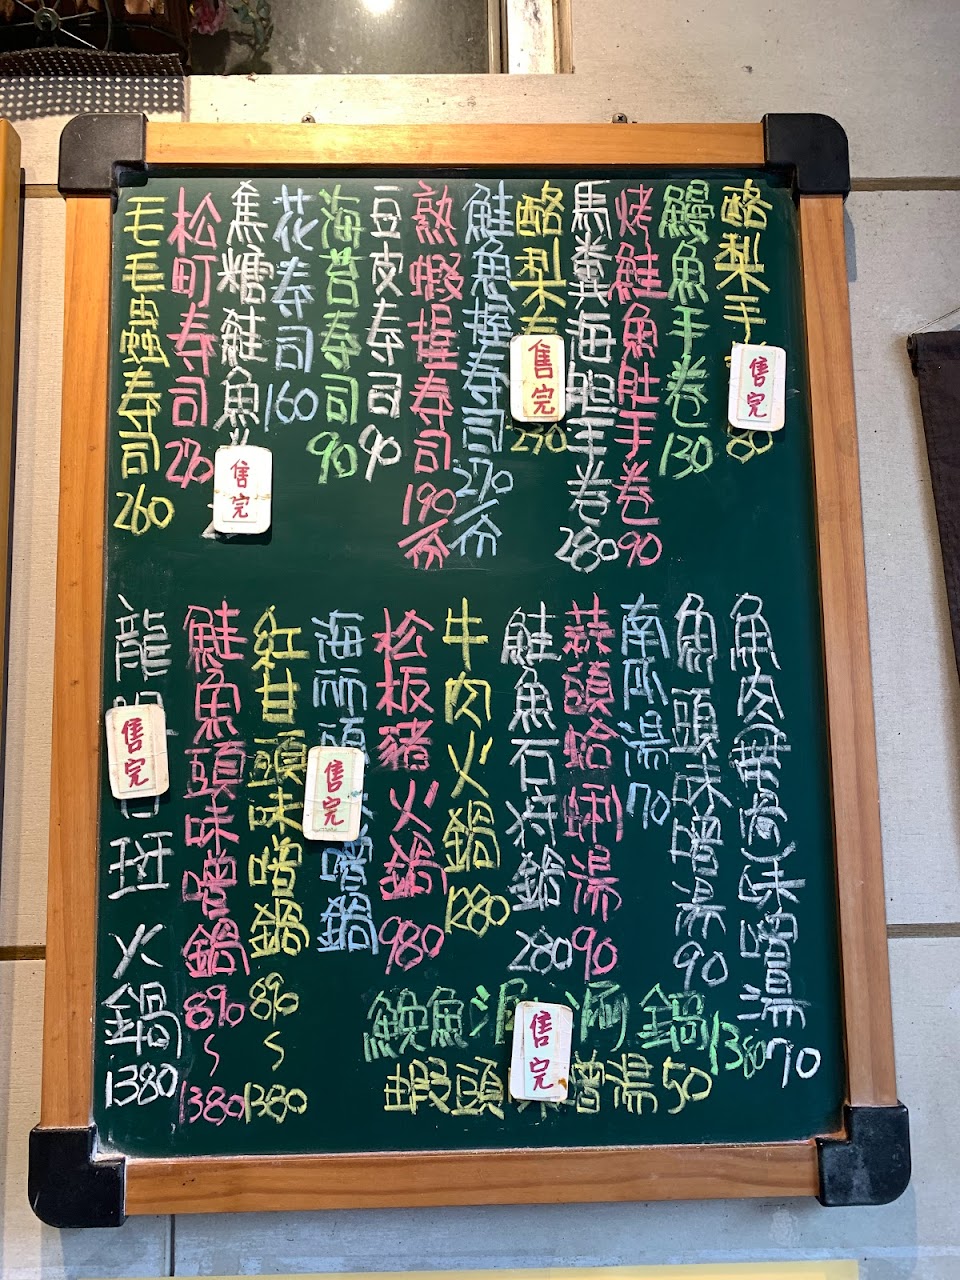 酪梨手 售完 80
鰻魚手卷 130
烤鮭魚肚手卷 90
馬糞海胆手卷 280
酪梨 售完 230
鮭魚握壽司 270/份
熟蝦握壽司 190/份
豆皮寿司 90
海苔寿司 90
花寿司 160
焦糖鮭魚 售完
松町寿司 270
毛毛蟲寿司 260
魚肉 味噌湯 70
魚頭味噌湯 90
南瓜湯 70
蒜頭蛤蜊湯 90
鮭魚石狩鍋 280
牛肉火鍋 1280
松板豬火鍋 980
海 頭 售完 噌鍋
紅甘頭味噌鍋 890~1380
鮭魚頭味噌鍋 890~1380
龍 售完 斑火鍋 1380
魚 售完 涮鍋 1380
蝦頭 噌湯 50